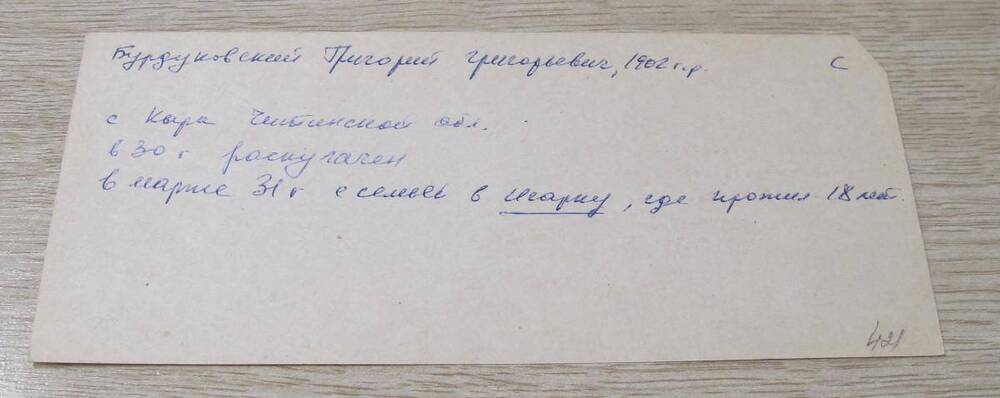 Бурдуковский Григорий Григорьевич, 1902 г.р. С
с Кыра Читинской обл.
в 30 г раскулачен
в марте 31 г с семьей в Игарку, где прожил 18 лет.
421